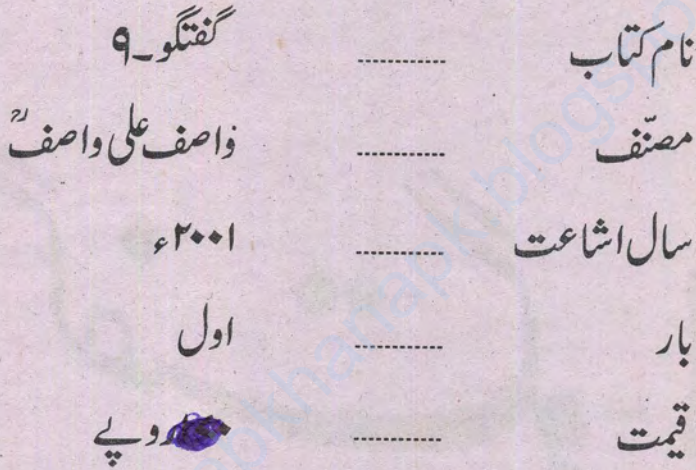 نام کتاب ........... گفتگو۔۹
مصنّف ........... واصف علی واصفؒ
سال اشاعت ........... ۲۰۰۱ء
بار ........... اول
قیمت ........... روپے